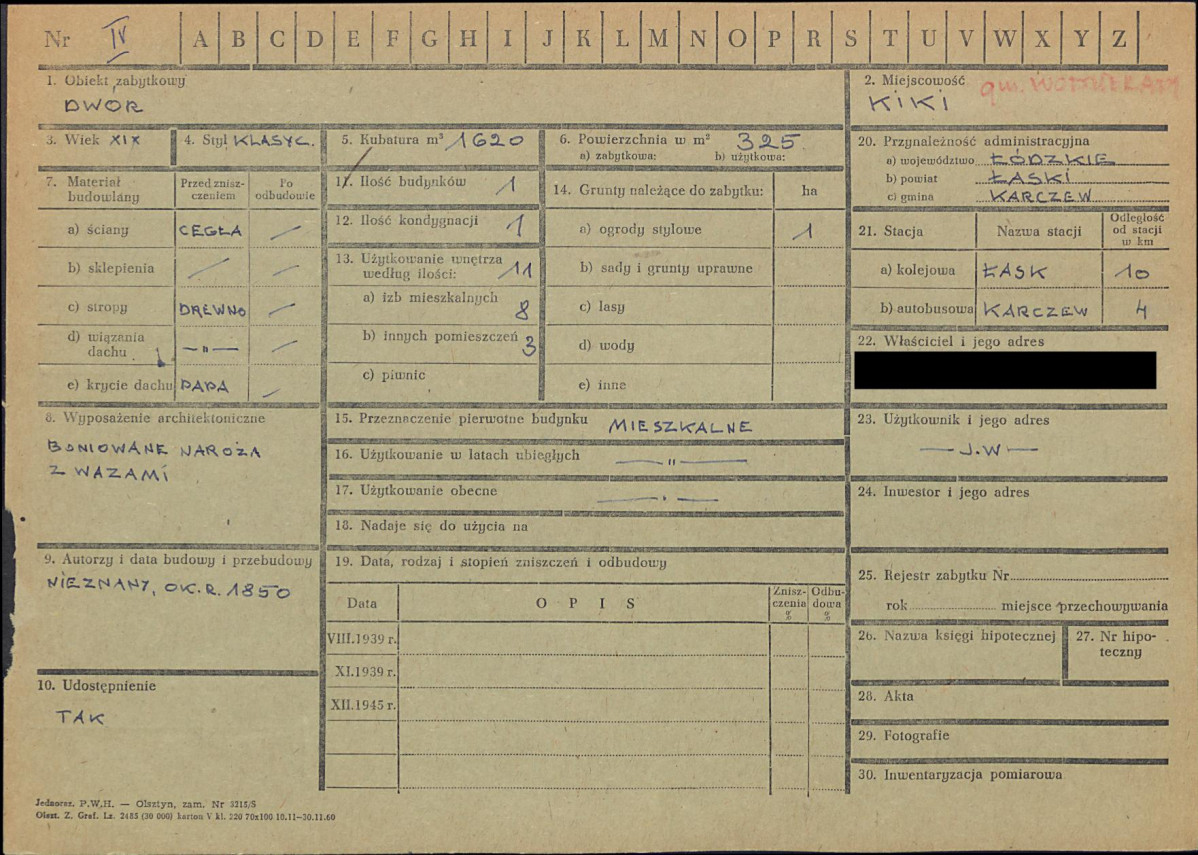 Nr IV A B C D E F G H I J K L M N O P R S T U V W X Y Z
1. Obiekt zabytkowy
DWOR
2. Miejscowość
KIKI
3. Wiek XIX
4. Styl KLASYC.
5. Kubatura m³ 1620
6. Powierzchnia w m² 325
a) zabytkowa: b) użytkowa:
7. Materiał budowlany
Przed znisz-
czeniem
Po
odbudowie
a) ściany CEGŁA —
b) sklepienia — —
c) stropy DREWNO —
d) wiązania
dachu —„— —
e) krycie dachu PAPA —
8. Wyposażenie architektoniczne
BONIOWANE NAROŻA
Z WAZAMI
9. Autorzy i data budowy i przebudowy
NIEZNANY, OK. R. 1850
10. Udostępnienie
TAK
11. Ilość budynków 1
12. Ilość kondygnacji 1
13. Użytkowanie wnętrza
według ilości: 11
a) izb mieszkalnych 8
b) innych pomieszczeń 3
c) piwnic
14. Grunty należące do zabytku: ha
a) ogrody stylowe 1
b) sady i grunty uprawne
c) lasy
d) wody
e) inne
15. Przeznaczenie pierwotne budynku MIESZKALNE
16. Użytkowanie w latach ubiegłych —„—
17. Użytkowanie obecne —„—
18. Nadaje się do użycia na
19. Data, rodzaj i stopień zniszczeń i odbudowy
Data OPIS
Znisz-
czenia
%
Odbu-
dowa
%
VIII.1939 r.
XI.1939 r.
XII.1945 r.
20. Przynależność administracyjna
a) województwo ŁÓDZKIE
b) powiat ŁASKI
c) gmina KARCZEW
21. Stacja Nazwa stacji
Odległość
od stacji
w km
a) kolejowa ŁASK 10
b) autobusowa KARCZEW 4
22. Właściciel i jego adres
23. Użytkownik i jego adres
— J.W —
24. Inwestor i jego adres
25. Rejestr zabytku Nr
rok miejsce przechowywania
26. Nazwa księgi hipotecznej
27. Nr hipo-
teczny
28. Akta
29. Fotografie
30. Inwentaryzacja pomiarowa
Jednoraz. P.W.H. — Olsztyn, zam. Nr 3215/S
Olszt. Z. Graf. Lz. 2485 (30 000) karton V kl. 220 70x100 10.11—30.11.60